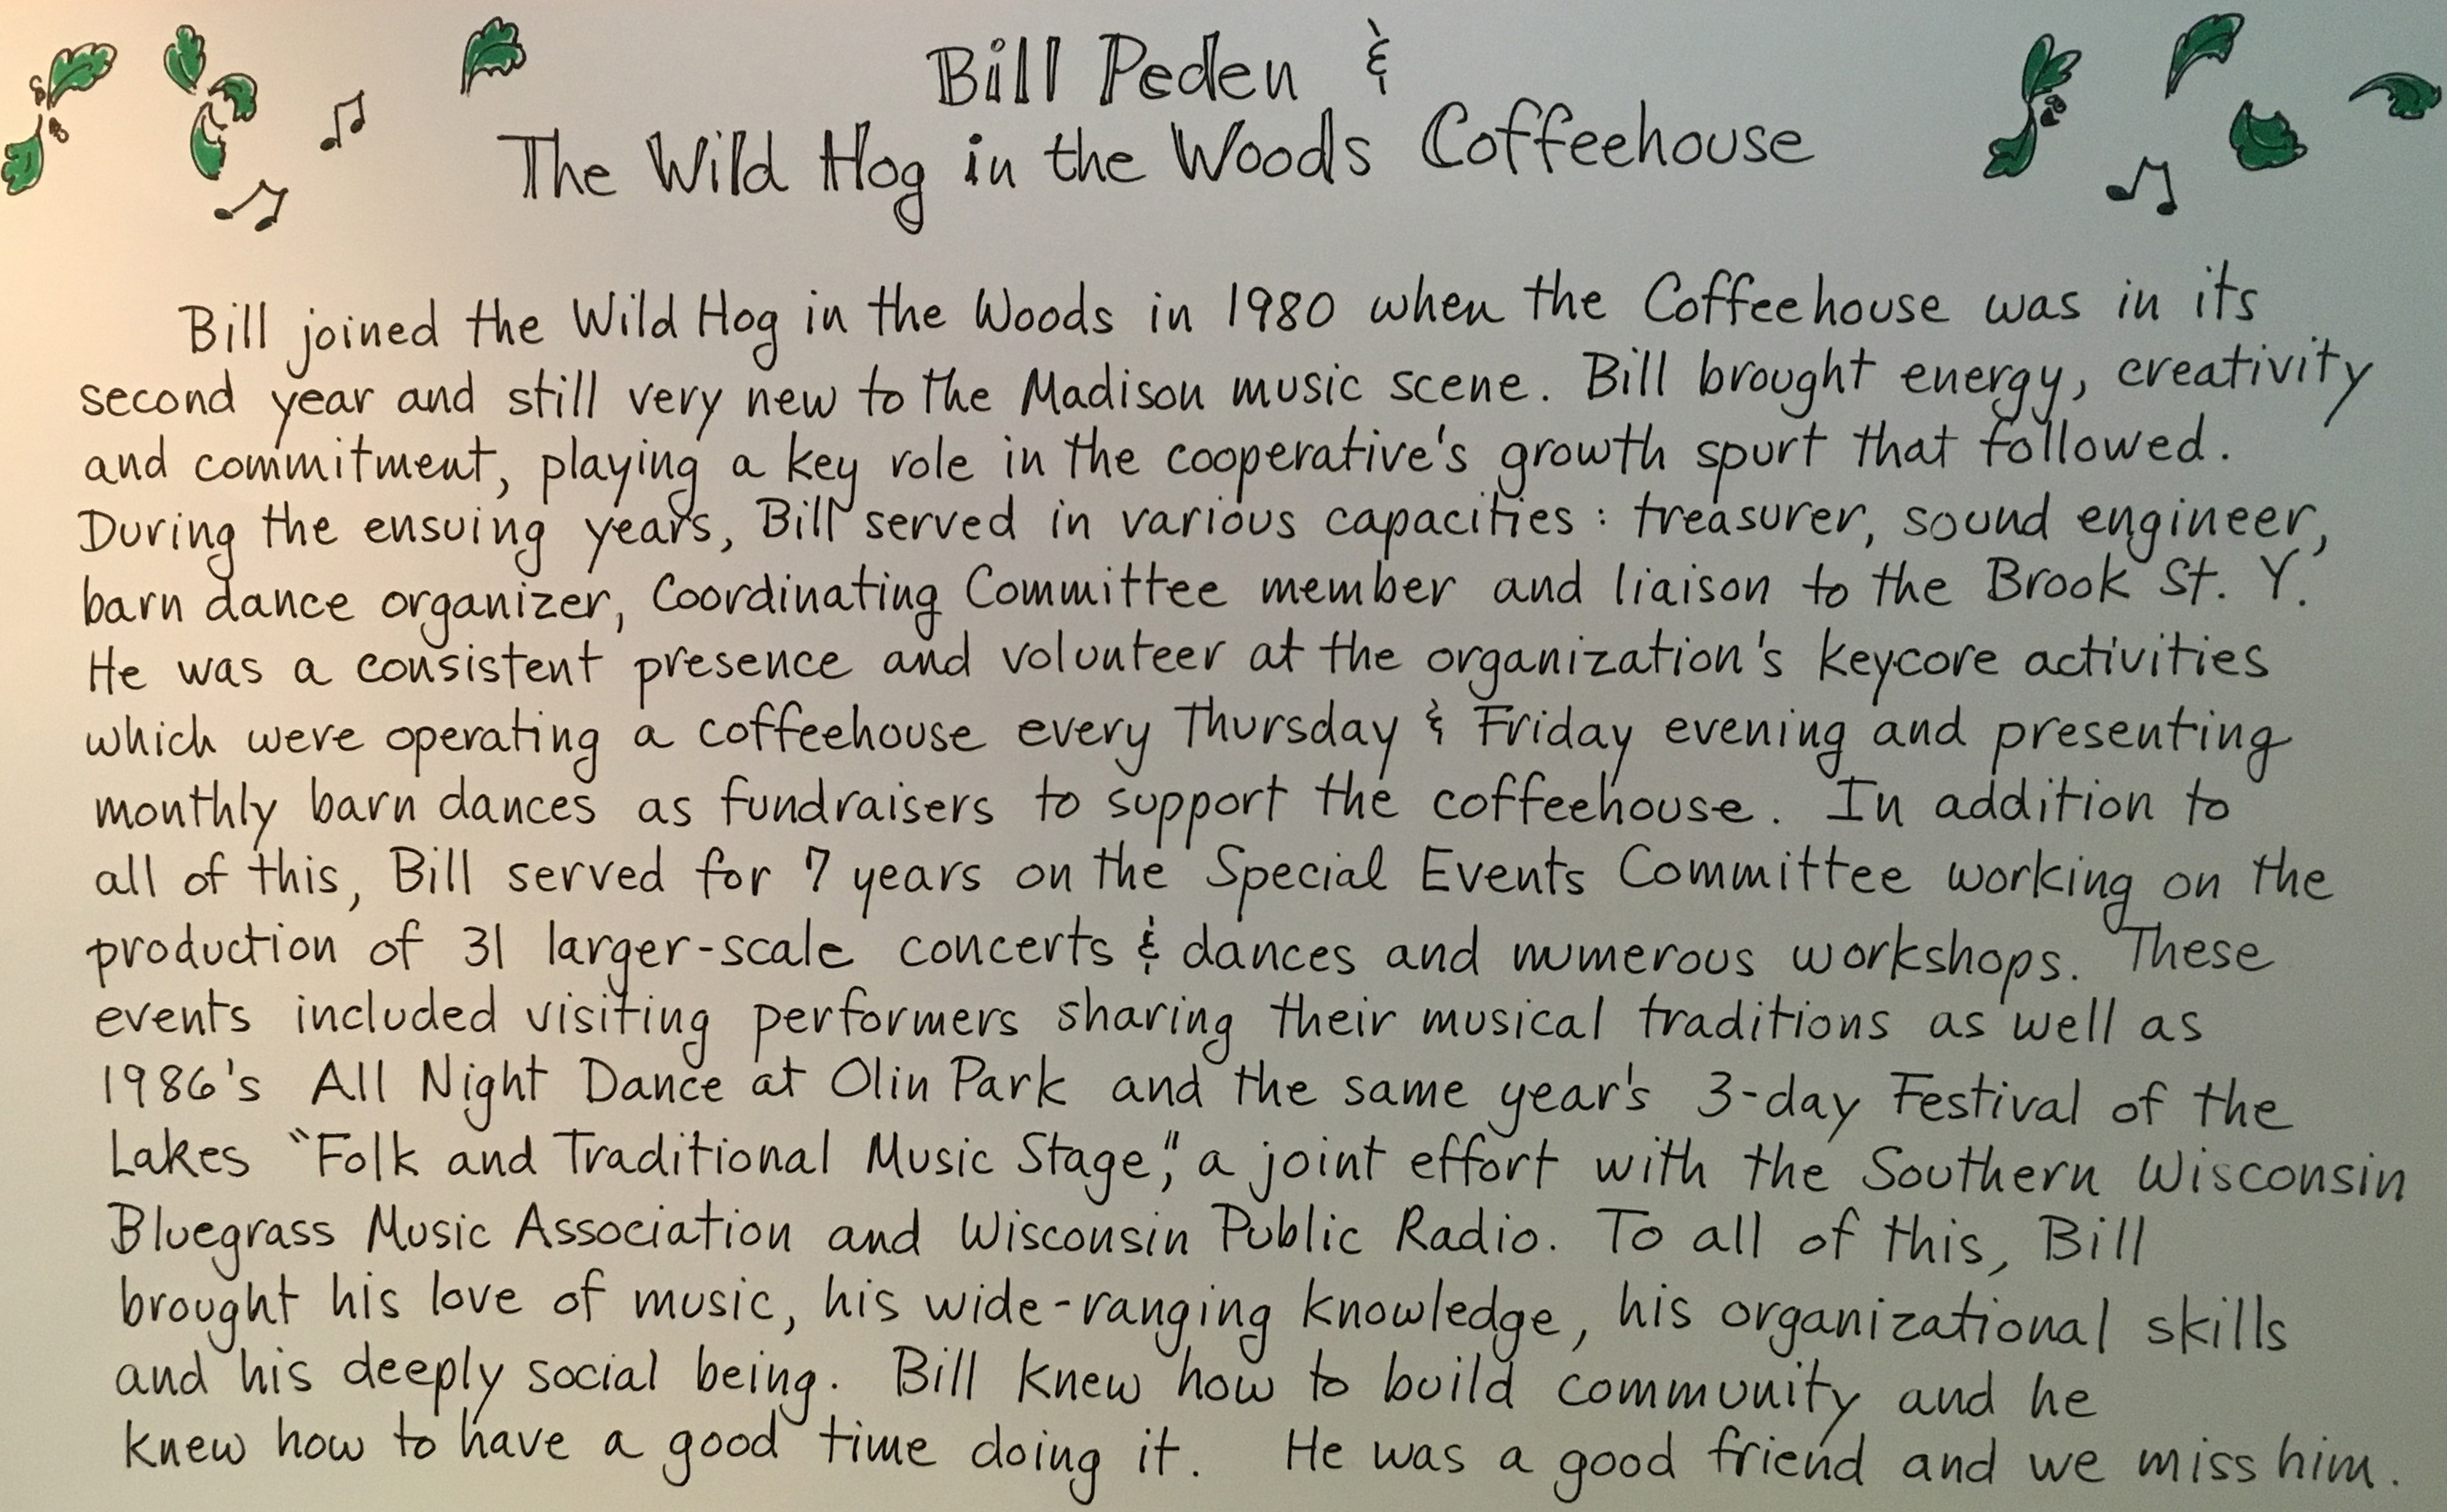 Bill Peden &
The Wild Hog in the Woods Coffeehouse
Bill joined the Wild Hog in the Woods in 1980 when the Coffeehouse was in its
second year and still very new to the Madison music scene. Bill brought energy, creativity
and commitment, playing a key role in the cooperative's growth spurt that followed.
During the ensuing years, Bill served in various capacities: treasurer, sound engineer,
barn dance organizer, Coordinating Committee member and liaison to the Brook St. Y.
He was a consistent presence and volunteer at the organization's keycore activities
which were operating a coffeehouse every Thursday & Friday evening and presenting
monthly barn dances as fundraisers to support the coffeehouse. In addition to
all of this, Bill served for 7 years on the Special Events Committee working on the
production of 31 larger-scale concerts & dances and numerous workshops. These
events included visiting performers sharing their musical traditions as well as
1986's All Night Dance at Olin Park and the same year's 3-day Festival of the
Lakes "Folk and Traditional Music Stage," a joint effort with the Southern Wisconsin
Bluegrass Music Association and Wisconsin Public Radio. To all of this, Bill
brought his love of music, his wide-ranging knowledge, his organizational skills
and his deeply social being. Bill knew how to build community and he
knew how to have a good time doing it. He was a good friend and we miss him.